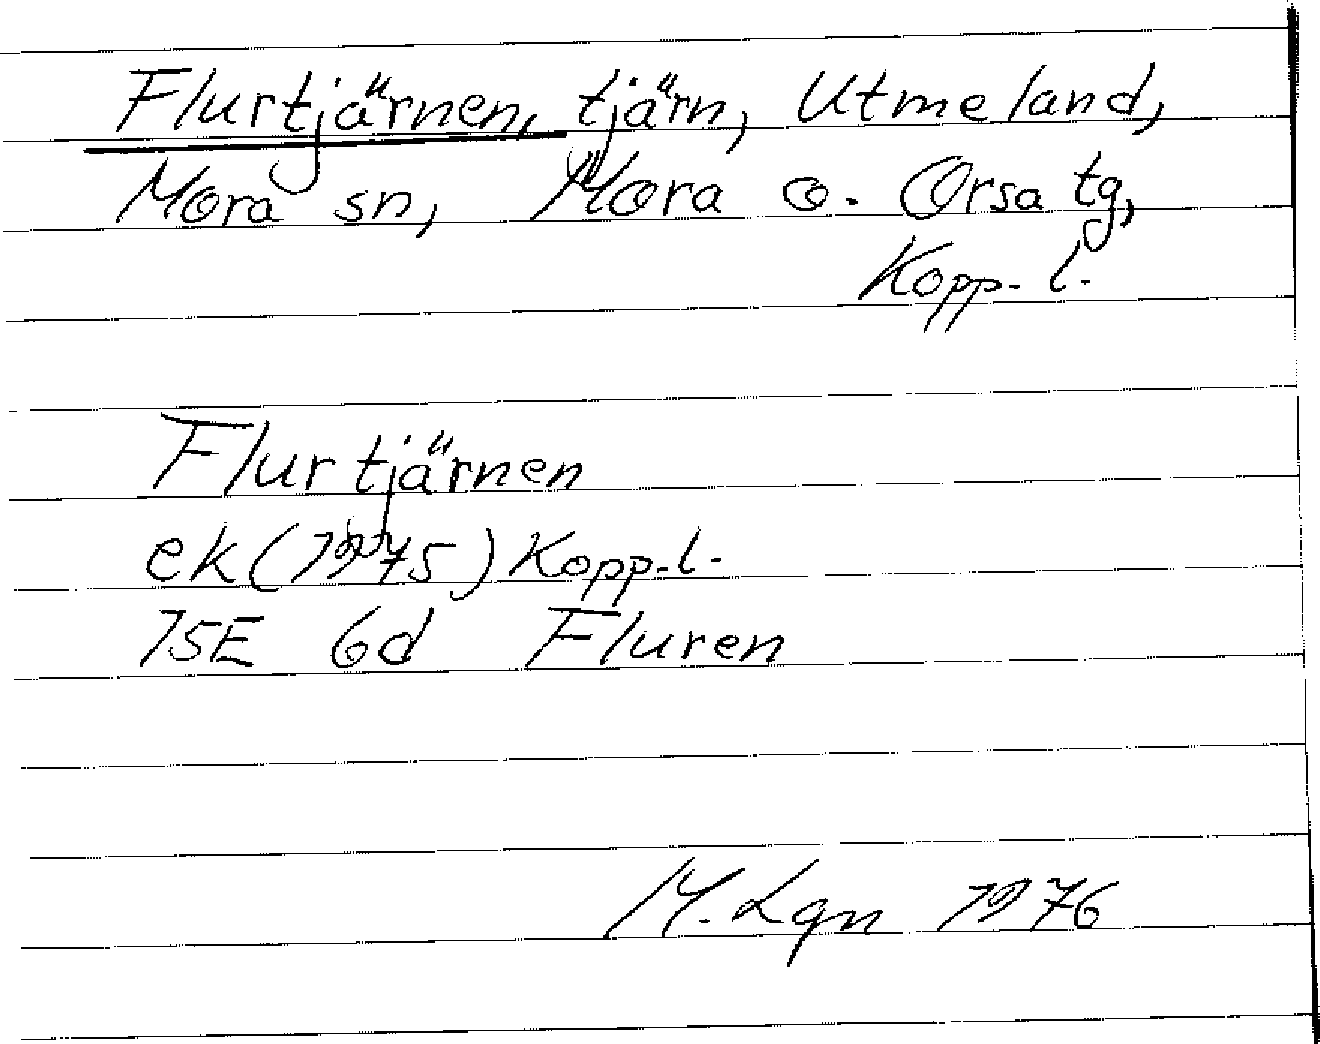 Flurtjärnen, tjärn, Utmeland,
Mora sn, Mora o. Orsa tg,
Kopp. l.
Flurtjärnen
ek (1975) Kopp. l.
15E 6d Fluren
M. Lgn 1976